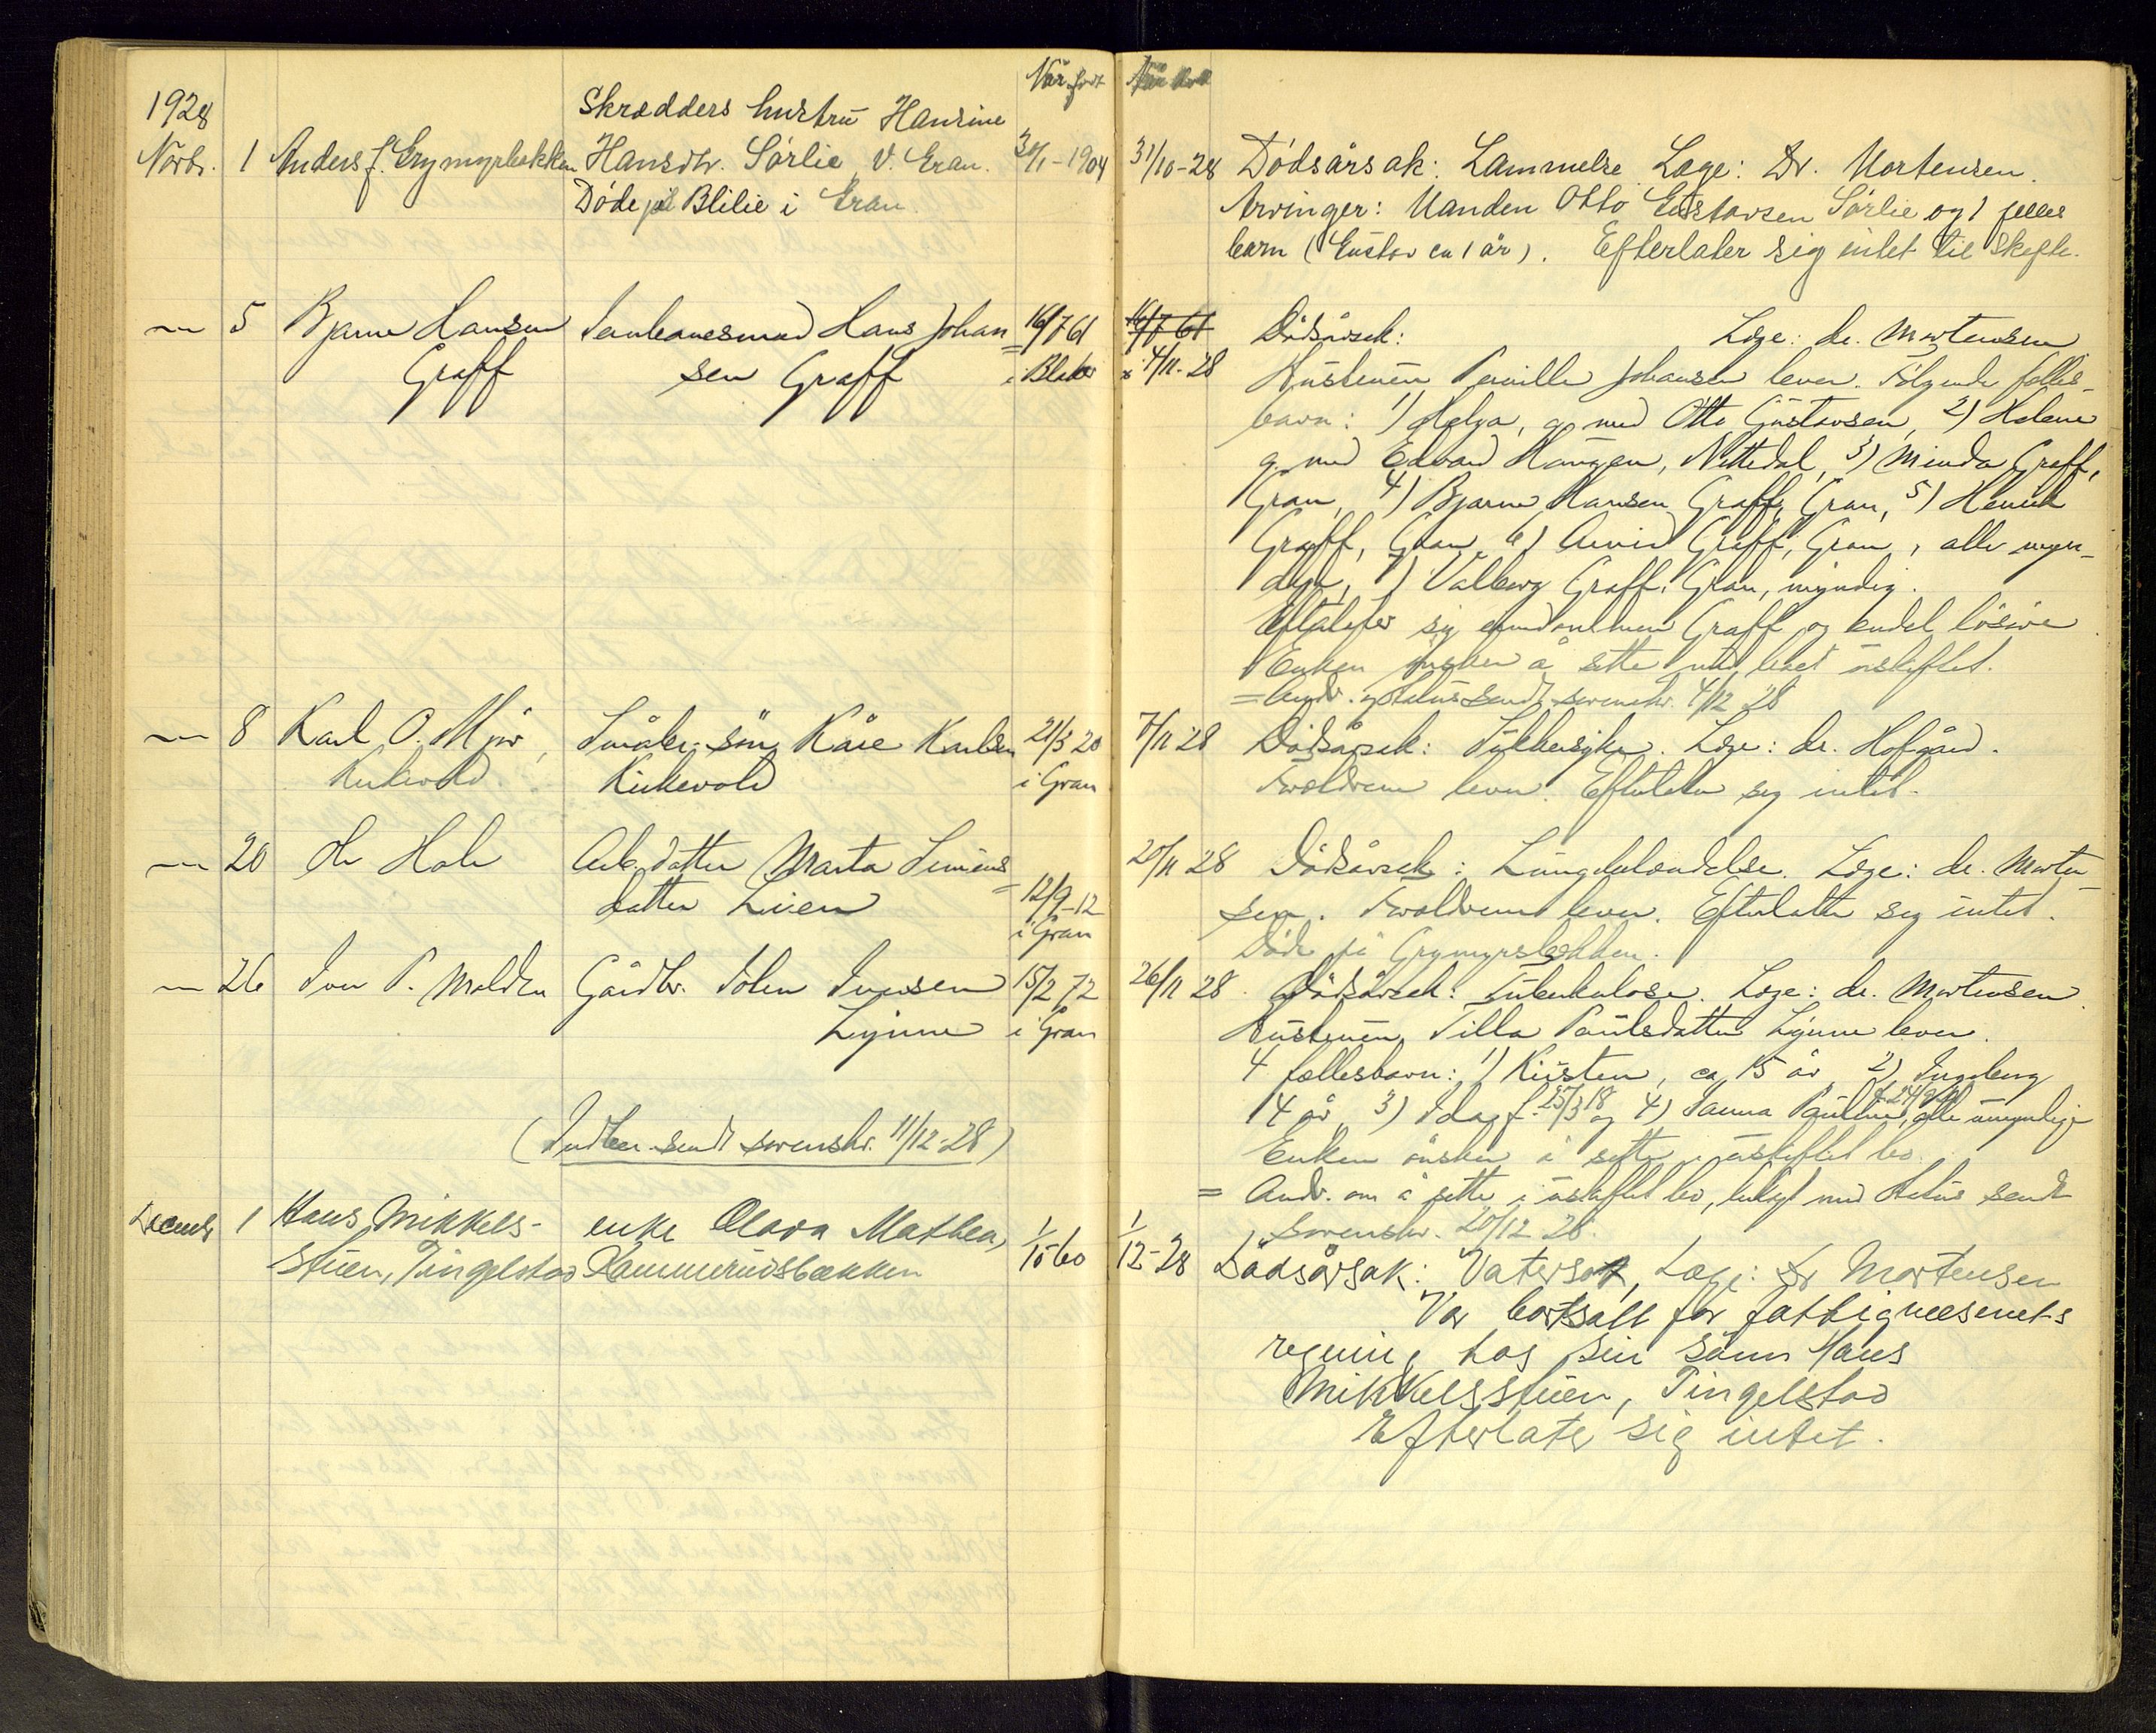 Når født Når død
1928
Skrædders hustru Hansine
Novbr. 1 Anders J. Grymyrbakken Hansdtr. Sørlie v. Gran. 30/1-1904 31/10-28 Dødsårsak: Lammelse Læge: Dr. Mortensen.
Døde på Blilie i Gran Arvinger: Manden Otto Gustavsen Sørlie og 1 felles
barn (Gustav ca 1 år). Efterlater sig intet til skifte.
— 5 Bjarne Hansen Hans Johan 16/7 61 16/7 61 Dødsårsak: Læge: dr. Mortensen
Graff sen Graff i Blaker 4/11-28 Hustruen Pernille Johansen lever. Følgende felles-
barn: 1) Helga, g. med Otto Gustavsen, 2) Helene
g. med Edvard Haugen, Nittedal, 3) Minda Graff,
Gran, 4) Bjarne Hansen Graff, Gran, 5) Henrik
Graff, Gran, 6) Arvid Graff, Gran, alle myn-
dige, 7) Valborg Graff, Gran, myndig.
Efterlater sig eiendommen Graff og endel løsøre
Enken ønsker å sitte i uskiftet.
= sendt sorenskr. 4/12 28
— 8 Karl O. Mjør, Småbr. søn Kåre Karlsen 21/3 20 7/11 28 Dødsårsak: Sukkersyke. Læge: dr. Hofgård.
Kirkevold. Kirkevold i Gran Foreldrene lever. Efterlater sig intet.
— 20 Ole Hole Arb. datter Marta Simens 20/11 28 Dødsårsak: Lungebetændelse. Læge: dr. Morten-
datter Lien 12/9-12 sen. Foreldrene lever. Efterlater sig intet.
i Gran Død på Grymyrsbakken.
— 26 Iver P. Molden Gårdbr. Iversen 15/2 72 26/11 28. Dødsårsak: Tuberkulose. Læge: dr. Mortensen.
Lynne i Gran Hustruen Tilla Paulsdatter Lynne lever.
4 fællesbarn: 1) Kirsten, ca 15 år 2) Ingeborg
14 år, 3) f. 25/3 18 og 4) Pauline, alle umyndige
(Indber. sendt sorenskr. 11/12-28) Enken ønsker å sitte i uskiftet bo.
= Andr. om å sitte i uskiftet bo, med sendt
sorenskr. 20/12 28.
Decemb. 1 Hans Mikkels- enke Olava Mathea 1/10-60 1/12-28 Dødsårsak: Vatersot, Læge: Dr Mortensen
stuen, Tingelstad Hammerudsbækken Var bortsatt for fattigvæsenets
regning hos sin sønn Hans
Mikkelsstuen, Tingelstad
Efterlater sig intet.